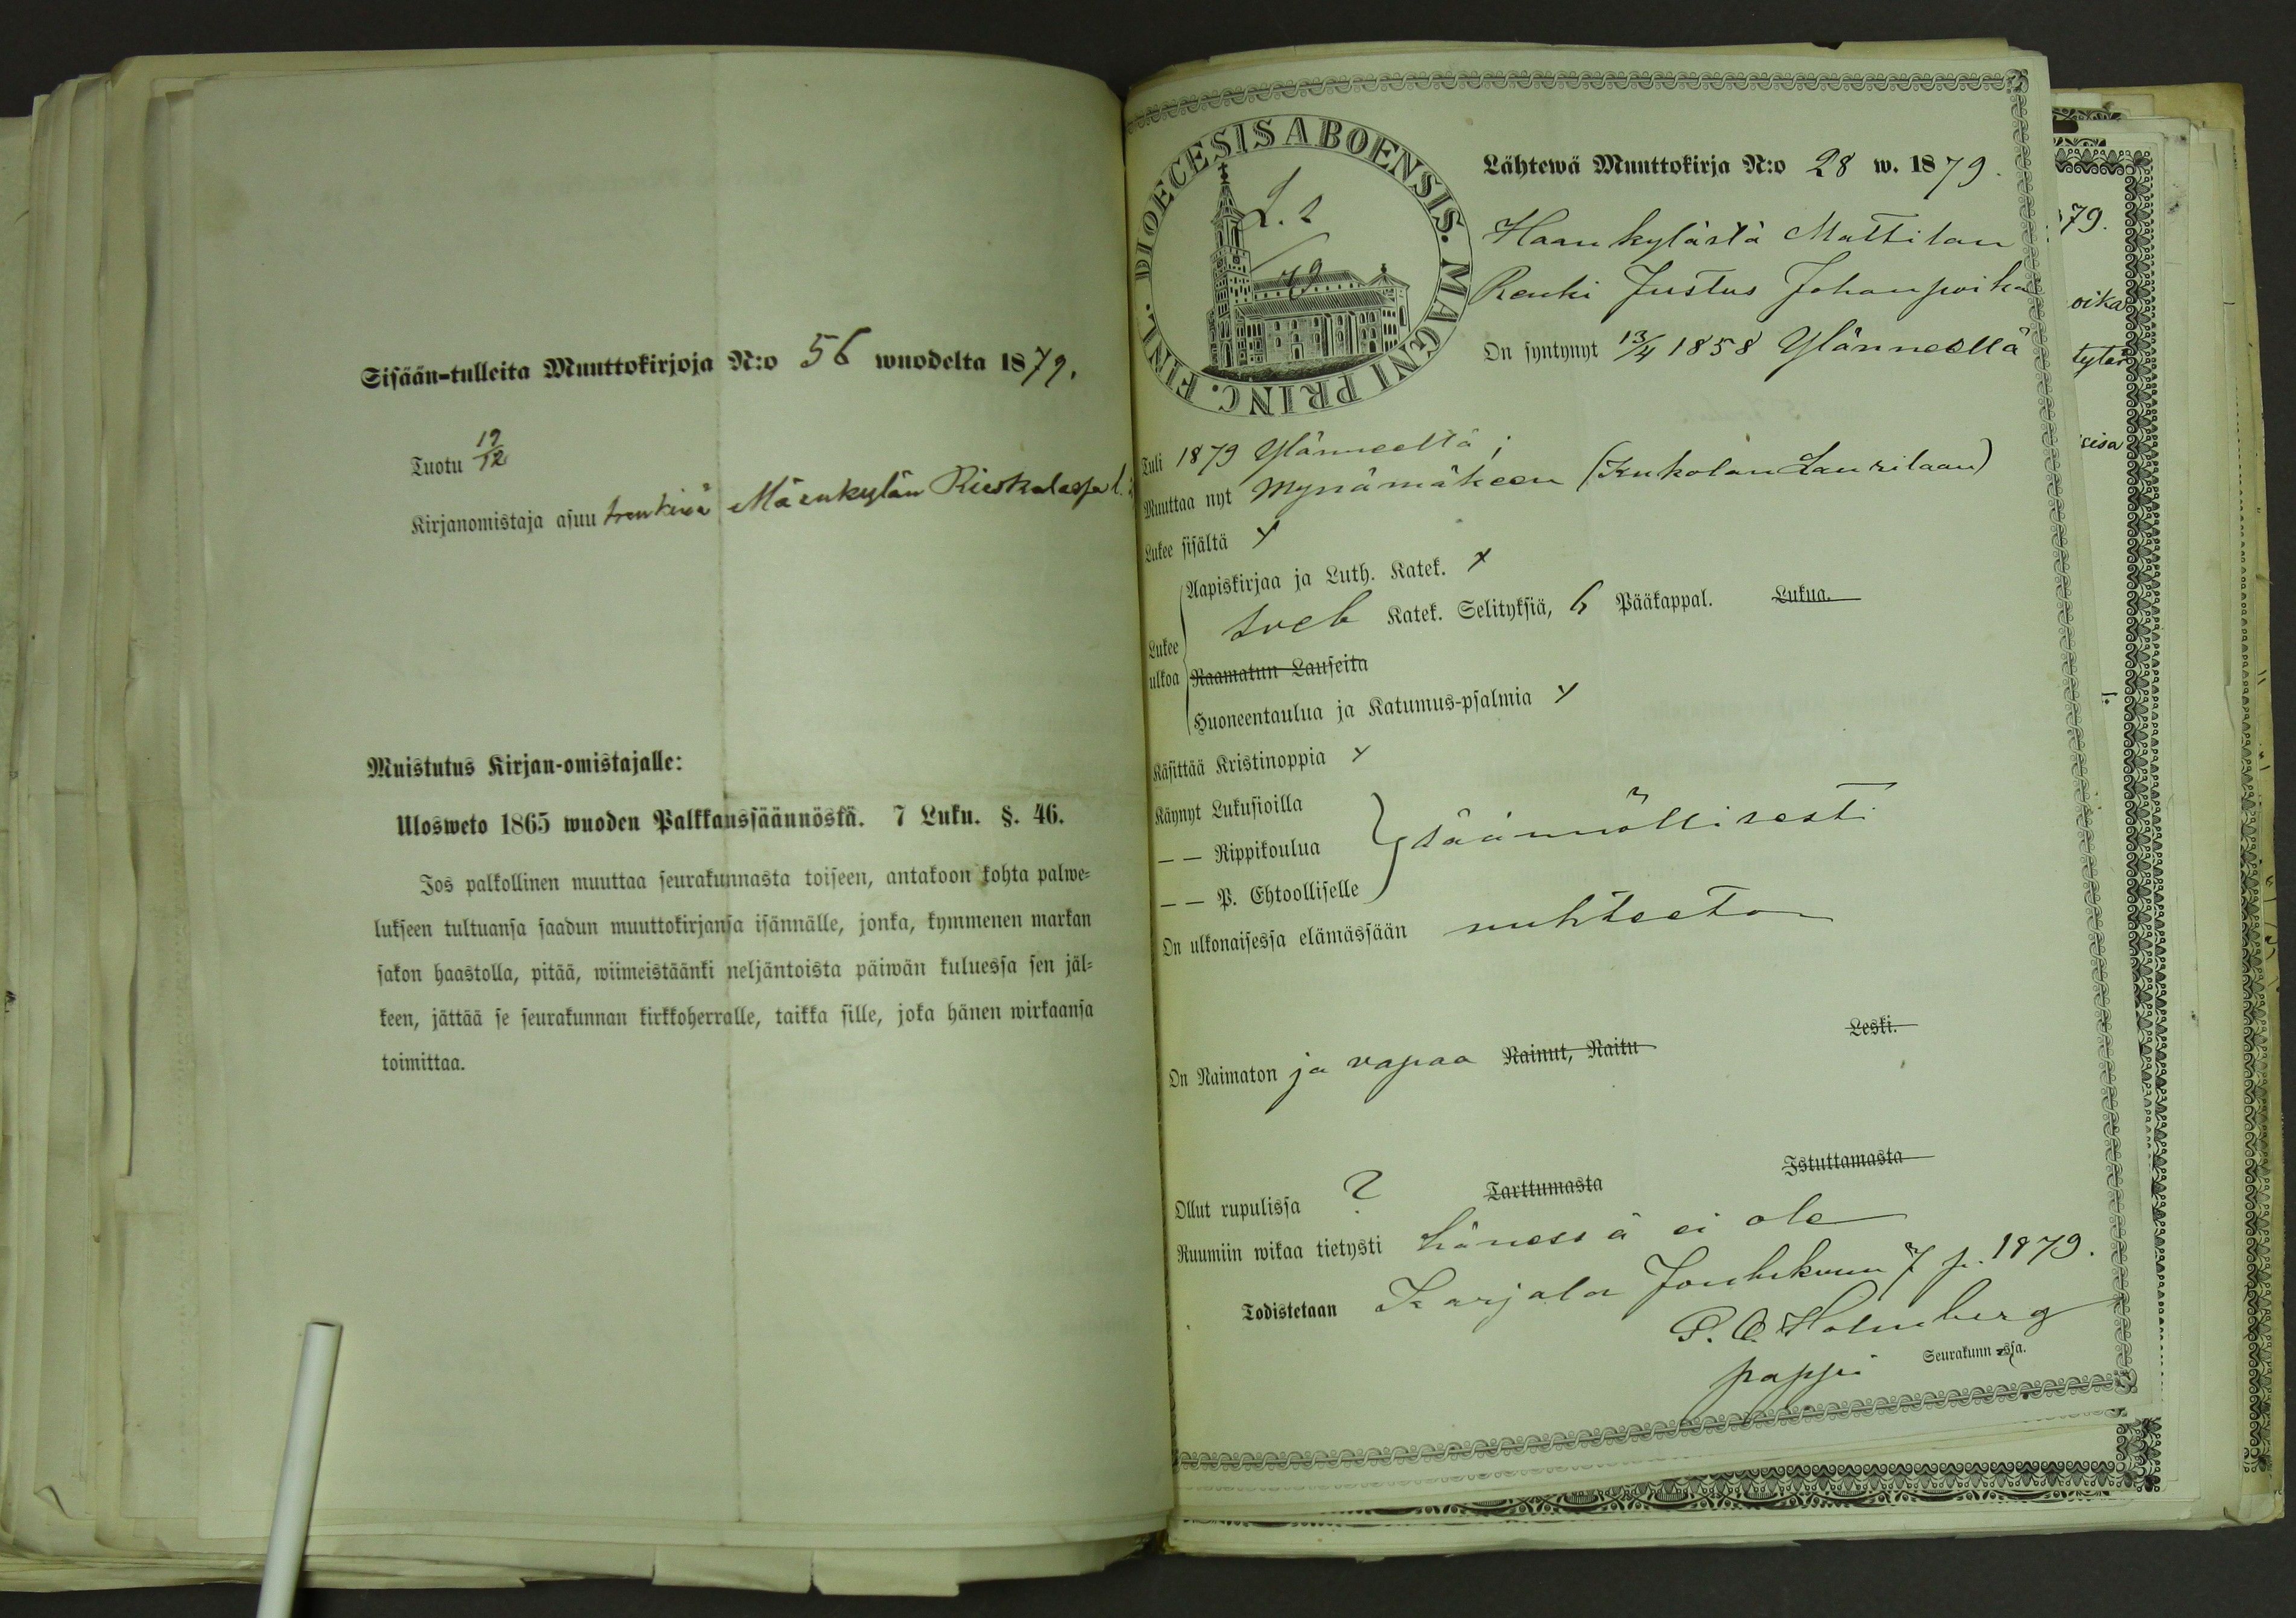 Sisään-tulleita Muuttokirjoja N:o 56 wuodelta 1879.
Tuotu 19/12
Kirjanomistaja asuu renkinä Mäenkylän
Muistutus Kirjan-omistajalle:
Ulosweto 1865 wuoden Palkkaussäännöstä. 7 Luku. §. 46.
Jos palkollinen muuttaa seurakunnasta toiseen, antakoon kohta palwe-
lukseen tultuansa saadun muuttokirjansa isännälle, jonka, kymmenen markan
sakon haastolla, pitää, wiimeistäänki neljäntoista päiwän kuluessa sen jäl-
keen, jättää se seurakunnan kirkkoherralle, taikka sille, joka hänen wirkaansa
toimittaa.
FINL. DIOECESIS ABOENSIS. MAGNI PRINC.
Lähtewä Muuttokirja N:o 28 w. 1879.
Haankylästä Mattilan
Renki Justus Johanpoika
On syntynyt 13/4 1858 Yläneellä
Tuli 1879 Yläneeltä;
Muuttaa nyt Mynämäkeen (Kukolan Laurilaan)
Lukee sisältä x
Lukee ulkoa
Aapiskirjaa ja Luth. Katek. x
Sveb Katek. Selityksiä, 6 Pääkappal. Lukua.
Raamatun Lauseita
Huoneentaulua ja Katumus-psalmia x
Käsittää Kristinoppia x
Käynyt Lukusioilla
— — Rippikoulua säännöllisesti
— — P. Ehtoolliselle
On ulkonaisessa elämässään nuhteeton
On Naimaton ja vapaa Nainut, Naitu Leski.
Ollut rupulissa ? Tarttumasta Istuttamasta
Ruumiin wikaa tietysti hänessä ei ole
Todistetaan Karjala Joulukuun 7 p. 1879.
Holmberg
pappi Seurakunnassa.
79.
oika
tytär